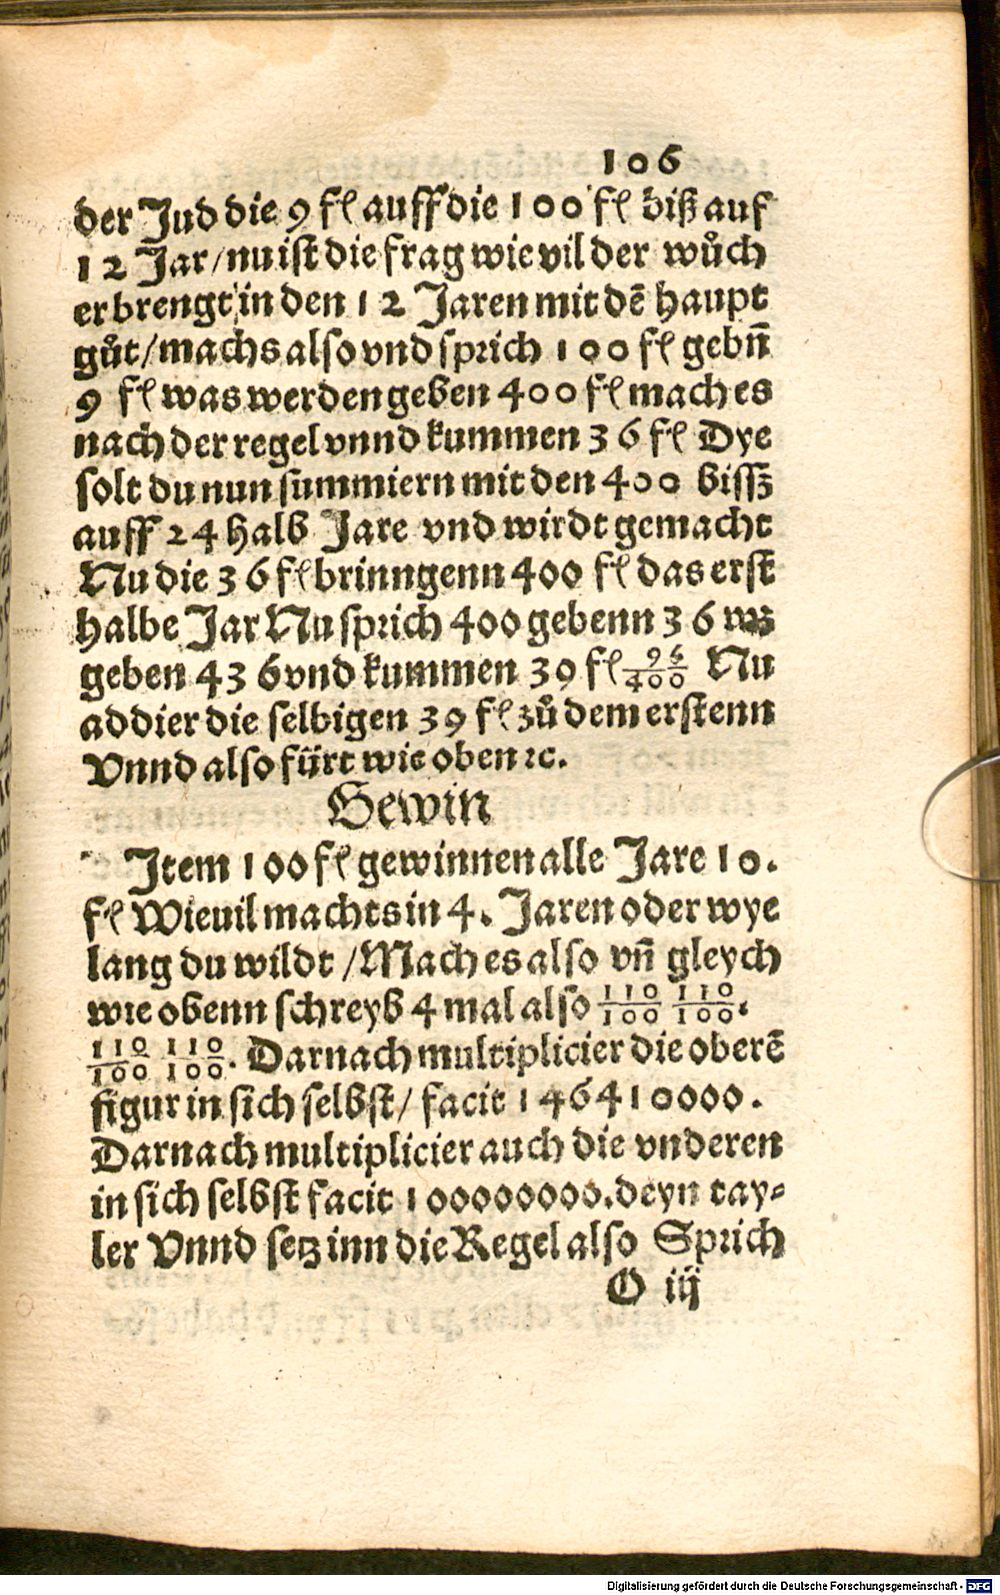 106
der Jud die 9 fl auff die 100 fl biß auf
12 Jar/nu ist die frag wie vil der wůch
er brengt in den 12 Jaren mit dē haupt
gůt/machs also vnd sprich 100 fl gebn̄
9 fl was werden geben 400 fl mach es
nach der regel vnnd kummen 36 fl Dye
solt du nun summiern mit den 400 bissz
auff 24 halb Jare vnd wirdt gemacht
Nu die 36 fl brinngenn 400 fl das erst
halbe Jar Nu sprich 400 gebenn 36 wz
geben 436 vnd kummen 39 fl 96/400 Nu
addier die selbigen 39 fl zů dem erstenn
Vnnd also fürt wie oben ꝛc.
Gewin
Item 100 fl gewinnen alle Jare 10.
fl Wieuil machts in 4. Jaren oder wye
lang du wildt /Mach es also vn̄ gleych
wie obenn schreyb 4 mal also 110/100 110/100.
110/100 110/100. Darnach multiplicier die oberē
figur in sich selbst/ facit 146410000.
Darnach multiplicier auch die vnderen
in sich selbst facit 100000000.deyn tay⸗
ler Vnnd setz inn die Regel also Sprich
O iij
Digitalisierung gefördert durch die Deutsche Forschungsgemeinschaft - DFG